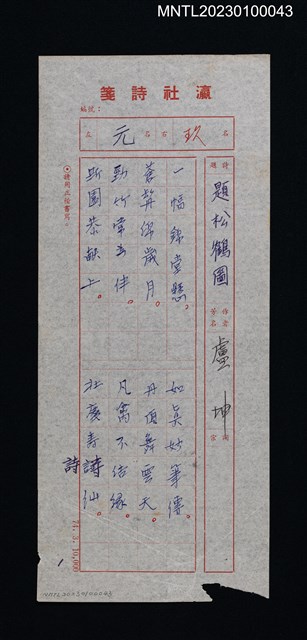 MNTL20230100043
瀛社詩箋
編號：
右 玖 名
左 元 名
詩題 題松鶴圖
作者筆名 盧坤
一幅錦堂懸，如真妙筆傳。
蒼髯綿歲月。丹舞雲天。
勁竹常為伴。凡禽不結緣。
斯圖恭獻上。社慶壽詩仙。
詩
◎請用正楷書寫
71.3.10,000
MNTL20230100043